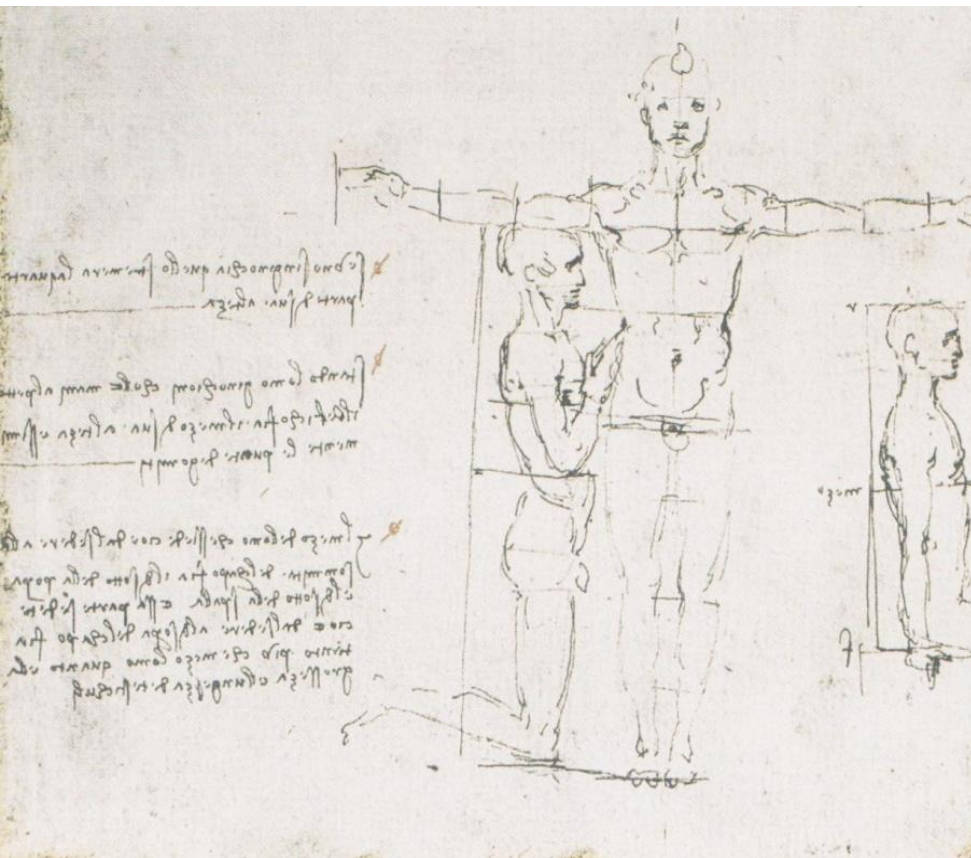 se lomo singinochia quello scemera la quarta
parte di sua alteza
stando lomo ginochioni cholle mani al petto
il bellicho fia il mezo di sua alteza e ssimil
mente le punte de gomiti
il mezo de lomo che ssiede cioe dal sedere alla
sommita del chapo fia il di sotto della poppa
e l di sotto della spalla essa parte sedente
cioe dal sedere alla sopa del chapo fia
tanto piu che mezo lomo quanto e la
grosseza e llungheza de testichuli
mezo